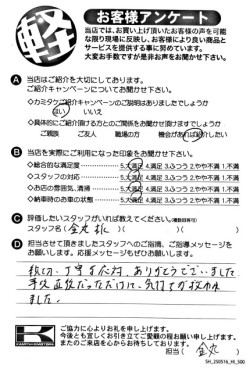 軽
お客様アンケート
当店では、お買い上げ頂いたお客様の声を可能
な限り現場に反映し、お客様により良い商品と
サービスを提供する事に努めています。
大変お手数ですが是非お声をお聞かせ下さい。
A 当店はご紹介を大切にしております。
ご紹介キャンペーンについてお聞かせ下さい。
◆カミタケご紹介キャンペーンのご説明はありましたでしょうか
はい いいえ
◆具体的にご紹介頂ける方とのご関係をお聞かせ頂けますでしょうか
ご親族 ご友人 職場の方 機会があれば紹介したい
B 当店を実際にご利用になった印象をお聞かせ下さい。
◇総合的な満足度 5.大満足 4.満足 3.ふつう 2.やや不満 1.不満
◇スタッフの対応 5.大満足 4.満足 3.ふつう 2.やや不満 1.不満
◇お店の雰囲気、清掃 5.大満足 4.満足 3.ふつう 2.やや不満 1.不満
◇納車時のお車の状態 5.大満足 4.満足 3.ふつう 2.やや不満 1.不満
C 評価したいスタッフがいれば教えてください。(複数回答可)
スタッフ名( 金丸 )( )( )
D 担当させて頂きましたスタッフへのご指摘、ご指導メッセージを
お願いします。応援メッセージもぜひお聞かせ下さい。
親切、丁寧な応対、ありがとうございました
ました。
ご協力に心よりお礼を申し上げます。
今後とも宜しくお引き立てご愛顧の程お願い申し上げます。
またのご来店を心からお待ちしております。
担当( 金丸 )
SH_250516_HI_500